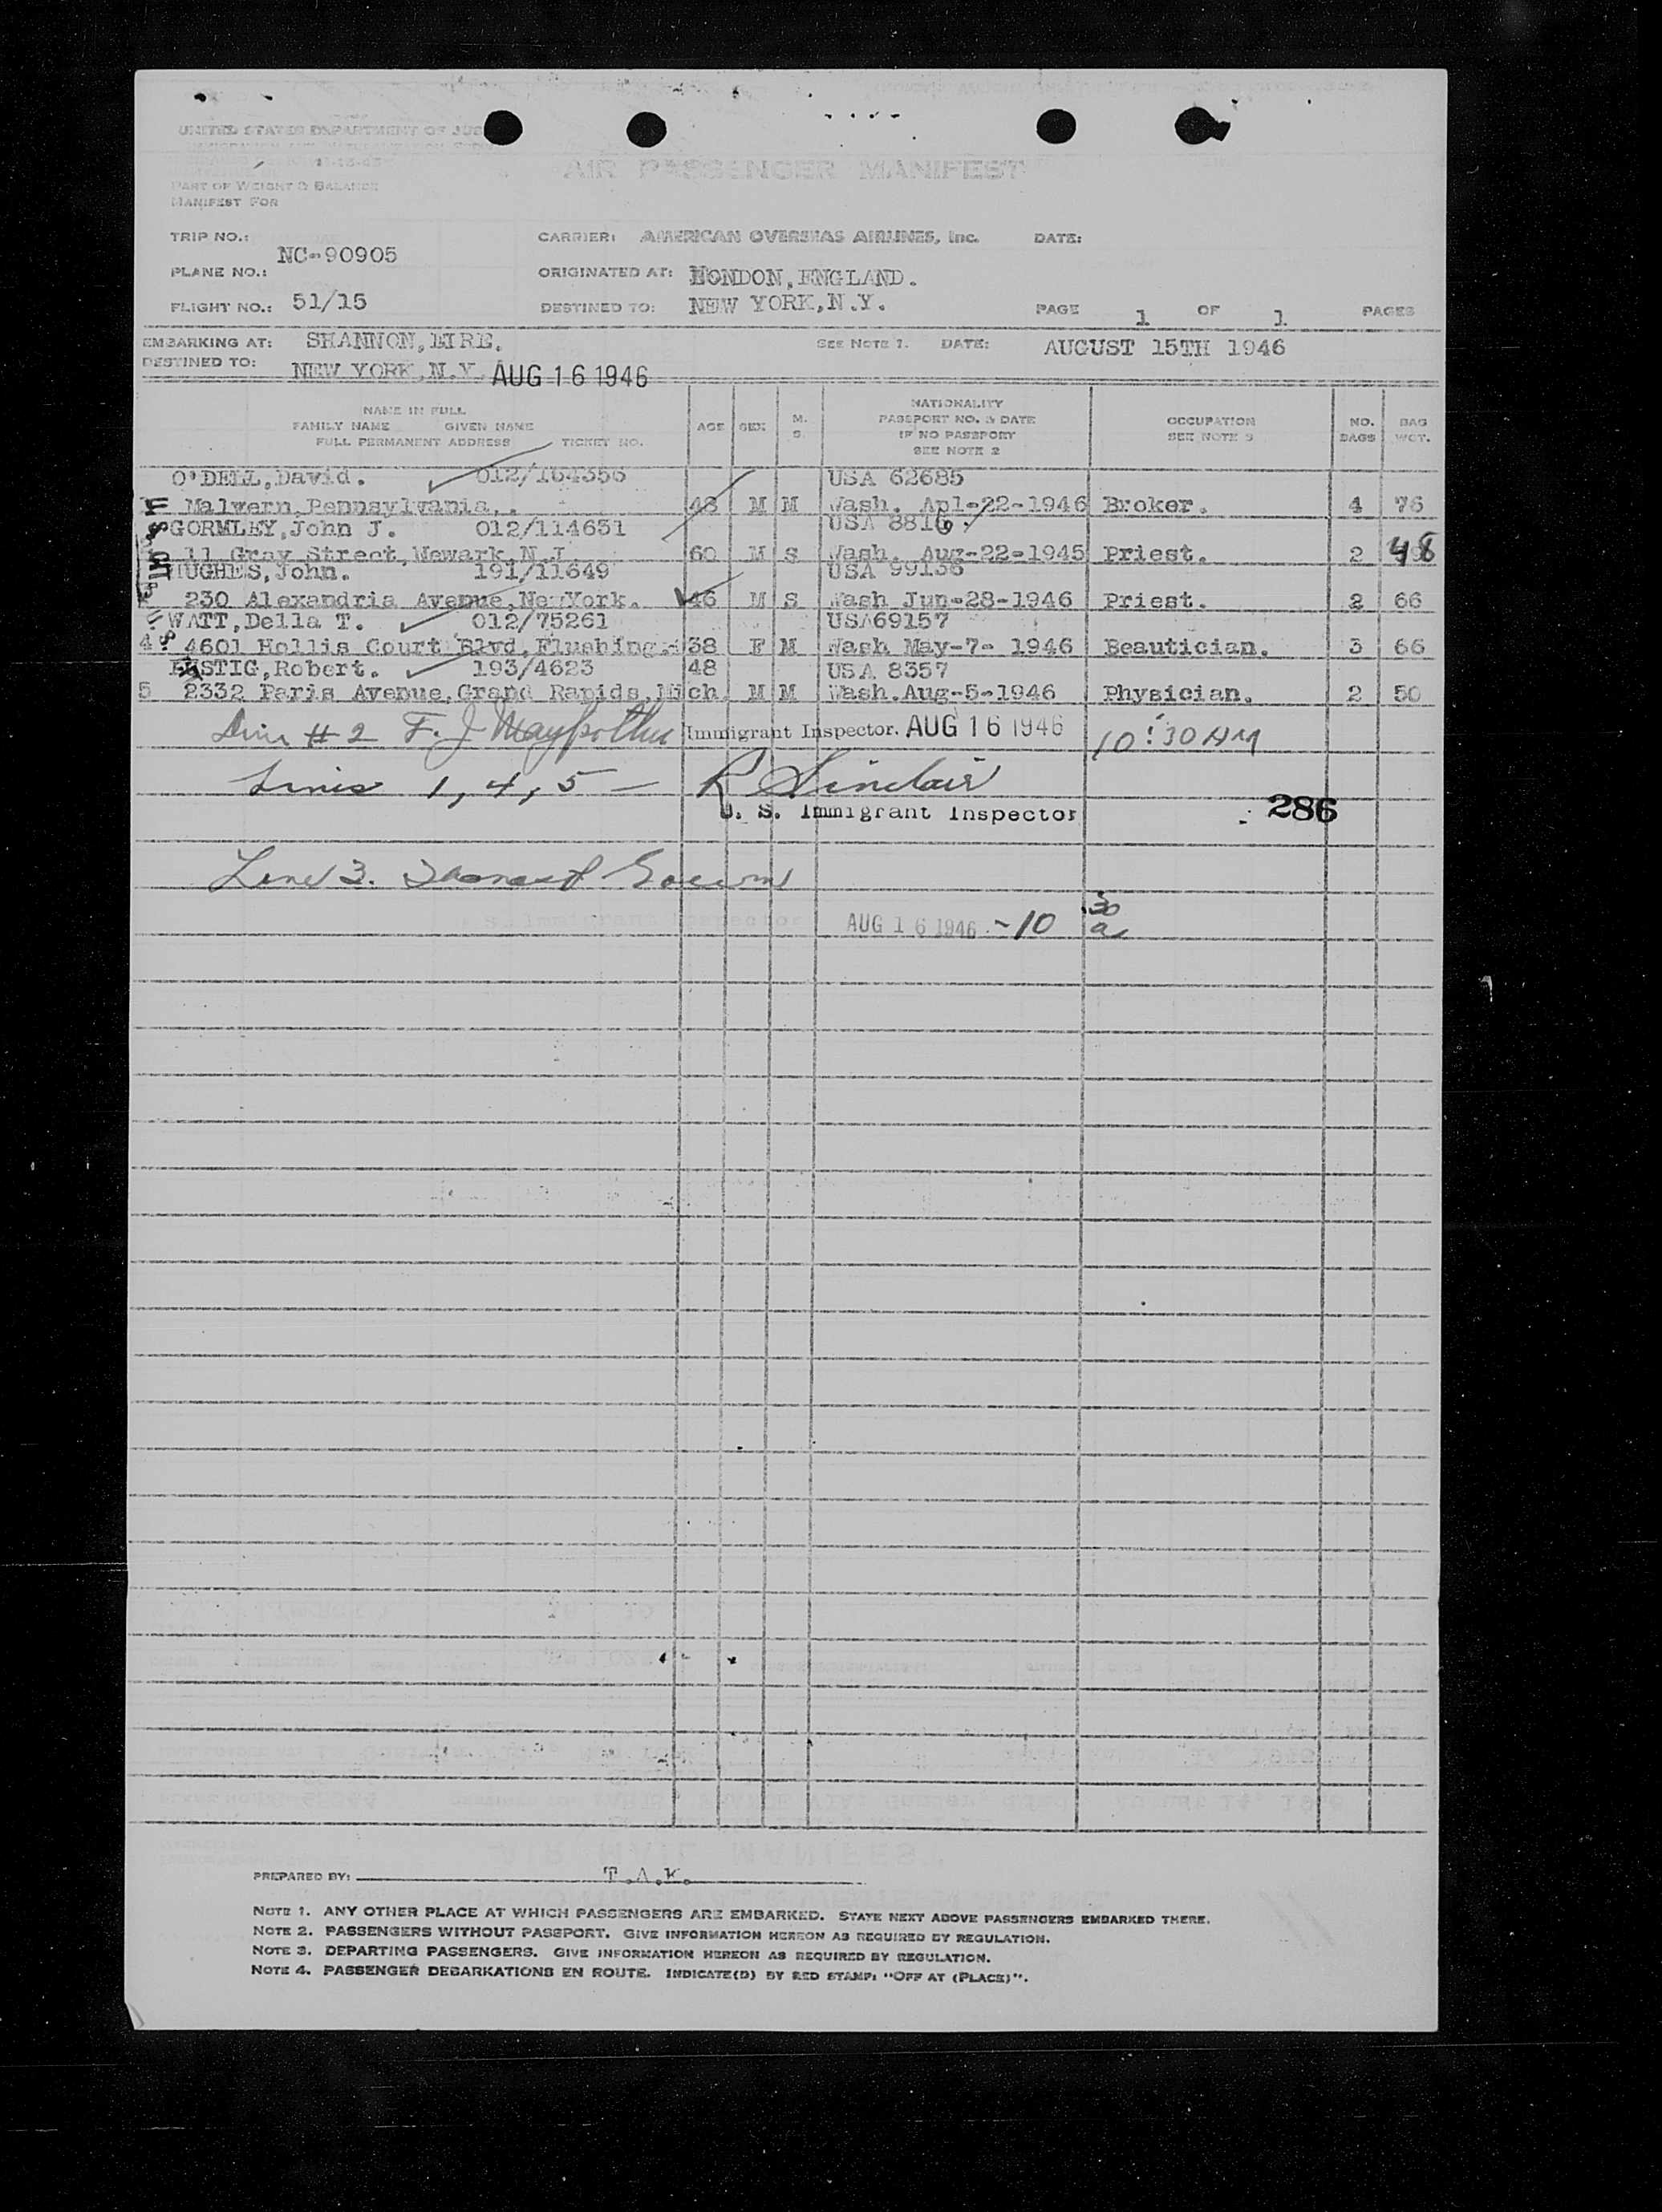 UNITED STATES DEPARTMENT OF JUS
AIR PASSENGER MANIFEST
PART OF WEIGHT & BALANCE
MANIFEST FOR
TRIP NO.: CARRIER: AMERICAN OVERSEAS AIRLINES, Inc. DATE:
NC-90905
PLANE NO.: ORIGINATED AT: LONDON,ENGLAND.
FLIGHT NO.: 51/15 DESTINED TO: NEW YORK,N.Y. PAGE 1 OF 1 PAGES
EMBARKING AT: SHANNON,EIRE. SEE NOTE 1. DATE: AUGUST 15TH 1946
DESTINED TO: NEW YORK,N.Y. AUG 16 1946
NAME IN FULL
FAMILY NAME GIVEN NAME
FULL PERMANENT ADDRESS TICKET NO.
AGE SEX M. S.
NATIONALITY
PASSPORT NO. & DATE
IF NO PASSPORT
SEE NOTE 2
OCCUPATION
SEE NOTE 3
NO. BAGS
BAG WGT.
O'DELL,David. 012/164356 USA 62685
Malvern,Pennsylvania.. 48 M M Wash. Apl-22-1946 Broker. 4 76
GORMLEY,John J. 012/114651 USA 8816
11 Gray Street,Newark,N.J. 60 M S Wash. Aug-22-1945 Priest. 2 48
HUGHES,John. 191/11649 USA 99136
230 Alexandria Avenue,NewYork. 46 M S Wash Jun-28-1946 Priest. 2 66
WATT,Della T. 012/75261 USA69157
4 4601 Hollis Court Blvd,Flushing. 38 F M Wash May-7- 1946 Beautician. 3 66
LUSTIG,Robert. 193/4623 48 USA 8357
5 2332 Paris Avenue,Grand Rapids,Mich. M M Wash.Aug-5-1946 Physician. 2 50
Line #2 F. J. Immigrant Inspector. AUG 16 1946 10:30 AM
Lines 1, 4, 5 — R Sinclair
U. S. Immigrant Inspector
286
Line 3.
AUG 16 1946 - 10 30 a
PREPARED BY: T.A.K.
NOTE 1. ANY OTHER PLACE AT WHICH PASSENGERS ARE EMBARKED. STATE NEXT ABOVE PASSENGERS EMBARKED THERE.
NOTE 2. PASSENGERS WITHOUT PASSPORT. GIVE INFORMATION HEREON AS REQUIRED BY REGULATION.
NOTE 3. DEPARTING PASSENGERS. GIVE INFORMATION HEREON AS REQUIRED BY REGULATION.
NOTE 4. PASSENGER DEBARKATIONS EN ROUTE. INDICATE(D) BY RED STAMP: "OFF AT (PLACE)".